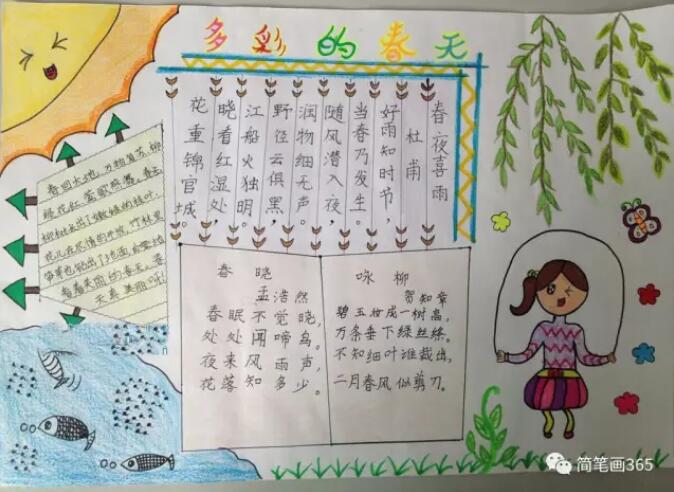 多彩的春天
春夜喜雨
杜甫
好雨知时节，
当春乃发生。
随风潜入夜，
润物细无声。
野径云俱黑，
江船火独明。
晓看红湿处，
花重锦官城。
春回大地，万物复苏，柳
绿花红，莺歌燕舞。春天
出了嫩绿的枝叶，
花儿在尽情的开放，竹林里
笋芽也钻出了地面，
看着美丽的春天。春
天真美丽呀！
春晓
孟浩然
春眠不觉晓，
处处闻啼鸟。
夜来风雨声，
花落知多少。
咏柳
贺知章
碧玉妆成一树高，
万条垂下绿丝绦。
不知细叶谁裁出，
二月春风似剪刀。
简笔画365